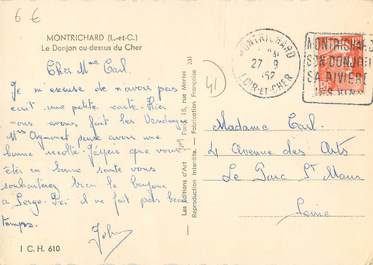 6 €
MONTRICHARD (L.-et-C.)
Le Donjon au-dessus du Cher
Cher Mme Carl.
Je m'excuse de n'avoir pas
écrit une petite carte. Hier
nous avons fait les Vendanges
Mrs Aymonet peut avoir une
bonne récolte. J'espère que vous
êtes en bonne santé vous
souhaiterez bien le bonjour
à Serge. Ici il ne fait pas beau
temps.
John
I C. H. 610
Les Editions d'Art
15, rue Martel
Paris-10e
Reproduction Interdite. - Fabrication Française
231
41
MONTRICHARD
27-9
LOIR-ET-CHER
MONTRICHARD
SON DONJON
SA RIVIÈRE
SES VINS
Madame Carl.
4 Avenue des Arts
Le Parc St Maur
Seine